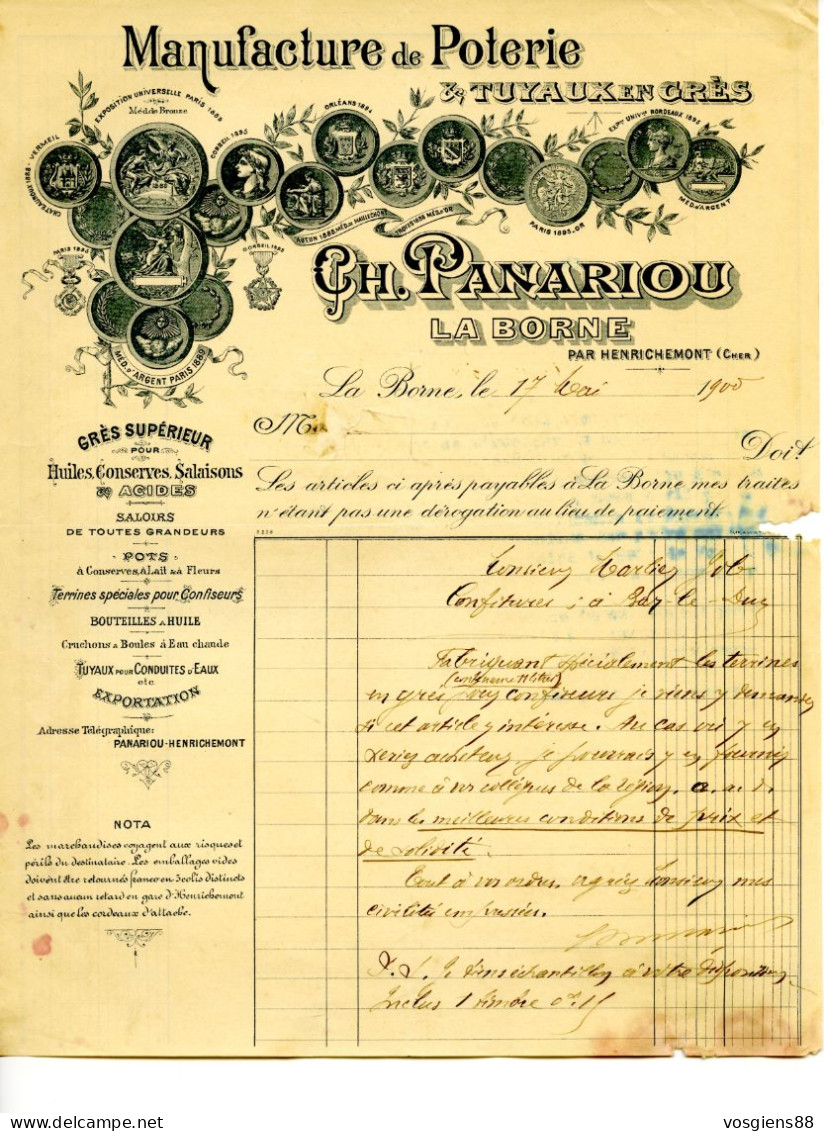 Manufacture de Poterie
& TUYAUX EN GRÈS
EXPOSITION UNIVERSELLE PARIS 1889
Méd.de Bronze
CHATEAUROUX 1893 VERMEIL
CORBEIL 1893
ORLÉANS 1884
EXPon UNIVlle BORDEAUX 1895
MÉD. D'ARGENT
PARIS 1895.OR
AUTUN 1888
PARIS 1893
MÉD. D'ARGENT PARIS 1889
CH. PANARIOU
LA BORNE
PAR HENRICHEMONT (CHER)
La Borne, le 17 Mai 1900
M
Doit
Les articles ci après payables à La Borne mes traites
n'étant pas une dérogation au lieu de paiement.
GRÈS SUPÉRIEUR
POUR
Huiles, Conserves, Salaisons
& ACIDES
SALOIRS
DE TOUTES GRANDEURS
POTS
à Conserves, à Lait & à Fleurs
Terrines spéciales pour Confiseurs
BOUTEILLES A HUILE
Cruchons & Boules à Eau chaude
TUYAUX POUR CONDUITES D'EAUX
etc.
EXPORTATION
Adresse Télégraphique:
PANARIOU-HENRICHEMONT
NOTA
Les marchandises voyagent aux risques et
périls du destinataire. Les emballages vides
doivent être retournés franco en 3 colis distincts
et sans aucun retard en gare d'Henrichemont
ainsi que les cordeaux d'attache.
Monsieur Job
Confitures à Bar-le-Duc
Fabriquant spécialement les terrines
en grès confiseurs je viens v/ demander
si cet article v/ intéresse. Au cas où v/ en
seriez acheteur je pourrais v/ en fournir
comme à vos collègues de la région
dans les meilleures conditions de prix et
de solidité.
Tout à vos ordres, agréez Monsieur mes
civilités empressées.
P. S. Je tiens échantillon à votre disposition
Inclus 1 timbre 0f 15
vosgiens88